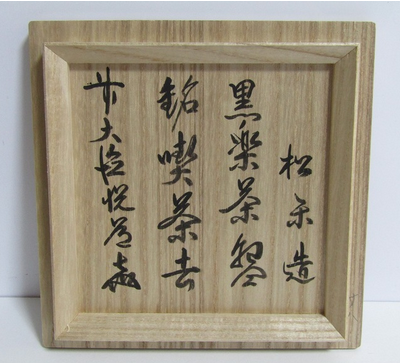 松楽造
黒楽茶盌
銘 喫茶去
大徳悦道